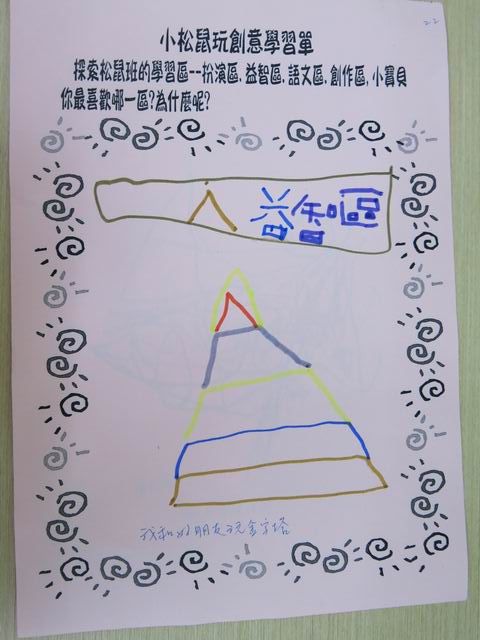 22
小松鼠玩創意學習單
探索松鼠班的學習區--扮演區,益智區,語文區,創作區,小寶貝
你最喜歡哪一區?為什麼呢?
益智區
我和好朋友玩金字塔